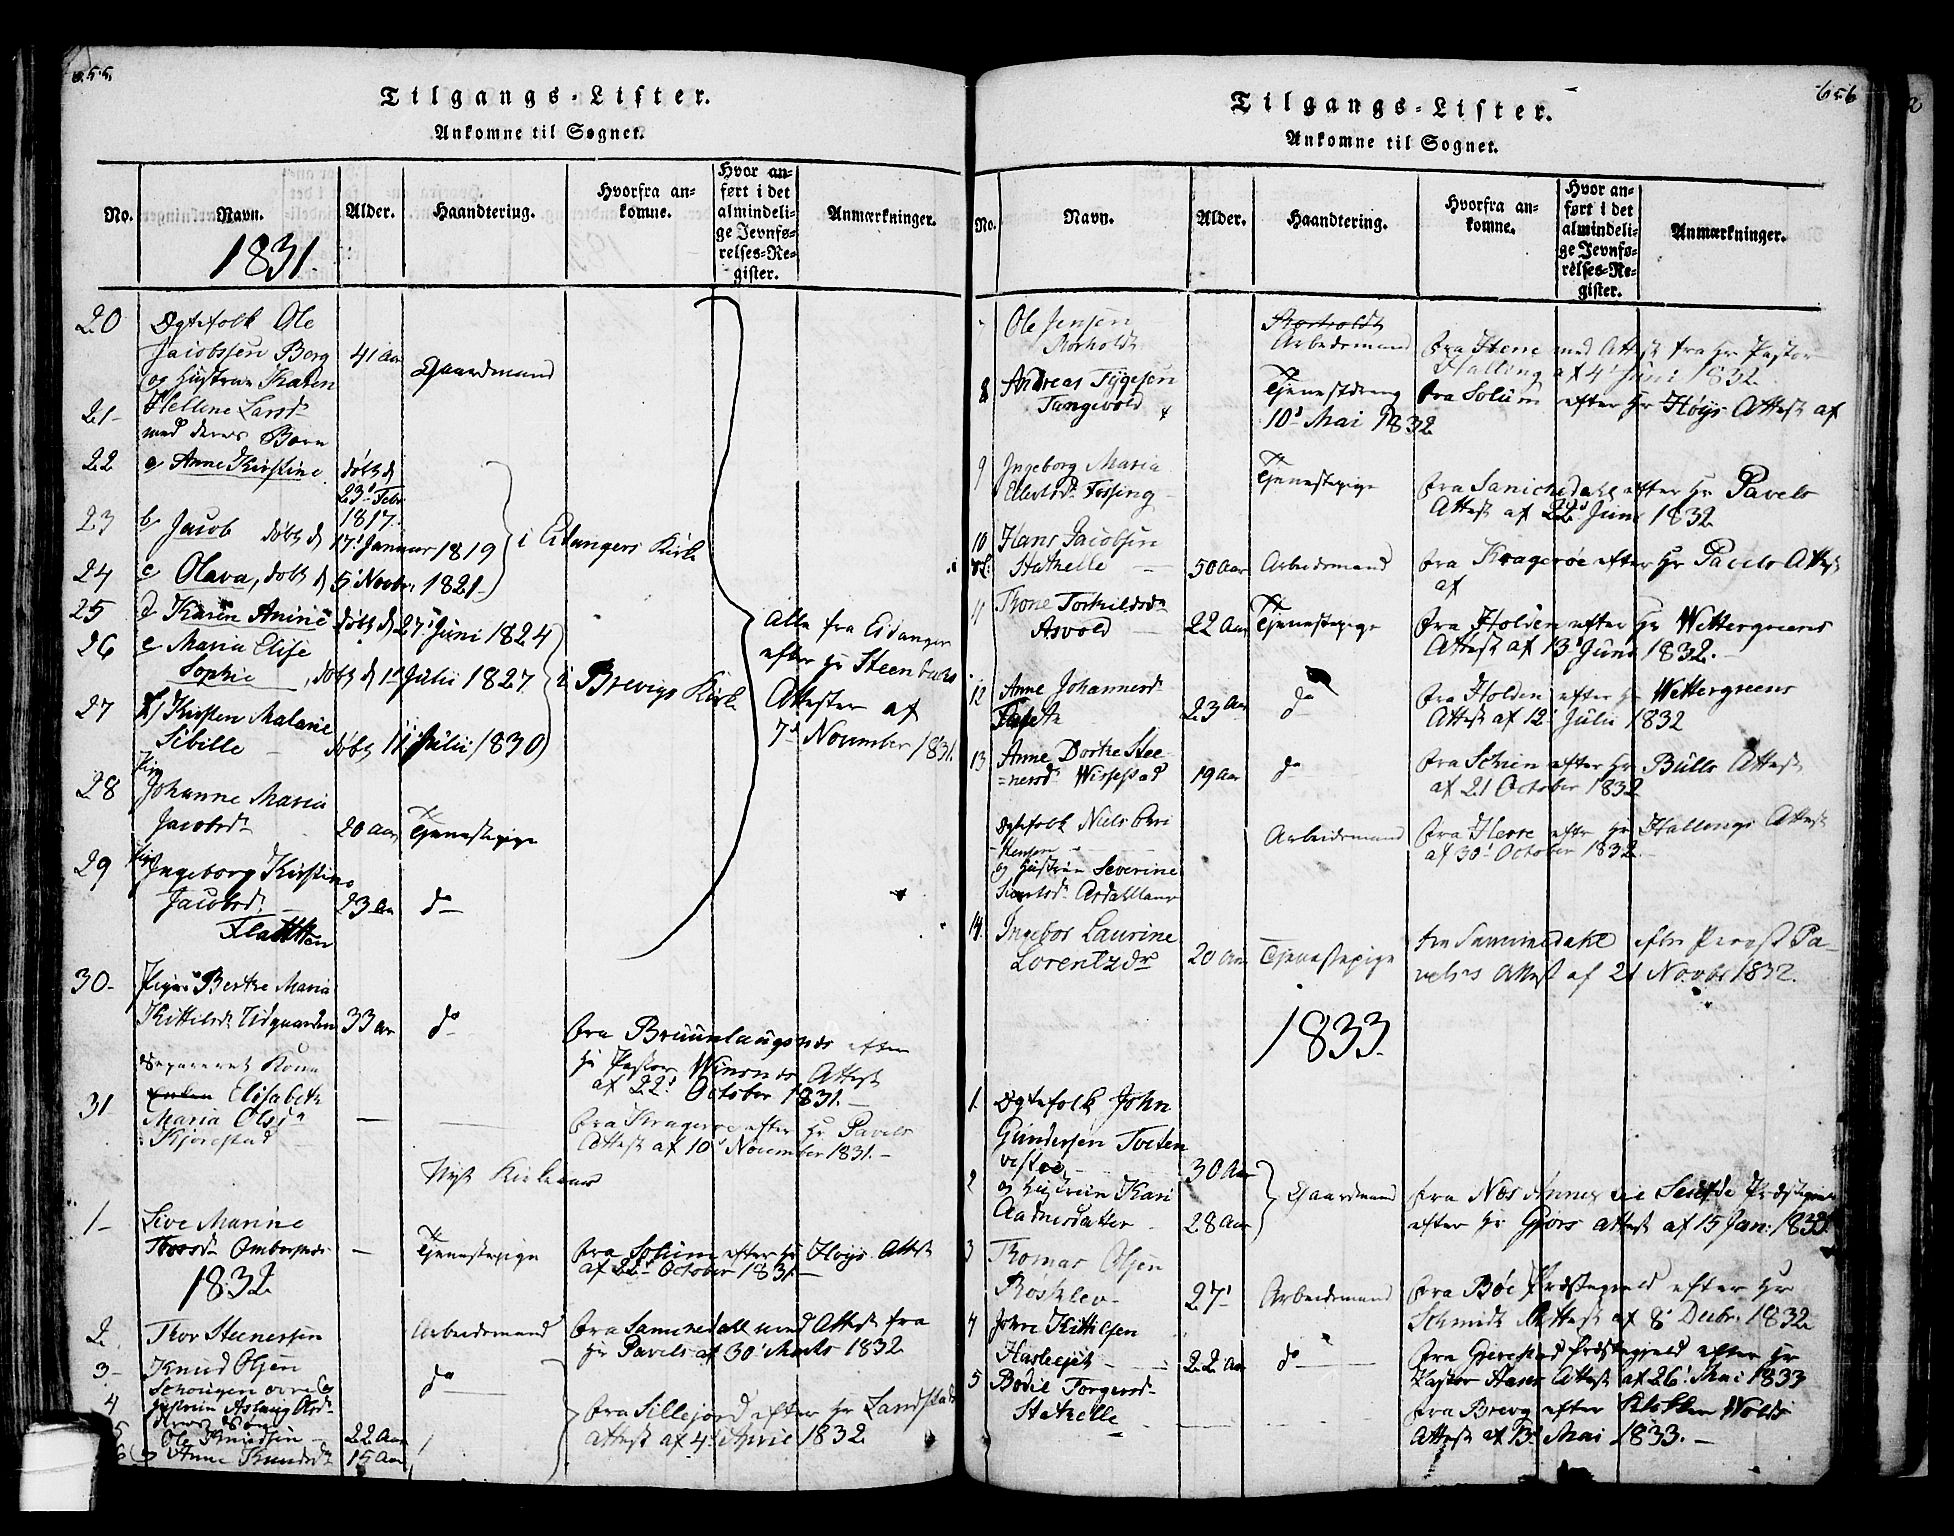 655
Tilgangs-Lister.
Ankomne til Sognet.
No. Navn. Alder. Haandtering. Hvorfra ankomne. Hvor anført i det almindelige Jevnførelses-Register. Anmærkninger.
1831.
20 Ægtefolk Ole
Jacobsen Borg 41 Aar Gaardmand
og Hustrue Karen
21- Hellene Larsd
med deres Børn
22 a Anne Kirstine døbt d
23d Febr
1817.
23 b Jacob døbt d 17d Januar 1819 i Eidangers Kirk
24 c Olava, døbt d 5d Novbr. 1821-
25 d Karen Anine døbt d 27d Juni 1824
26 e Maria Elise
Sophie, døbt d 1d Julii 1827 i Brevigs Kirk
27 f Kirsten Malanie
Sibille - døbt 11 Julii 1830
Alle fra Eidanger
efter Hr Steenbuchs
Attester af
7d November 1831.
28 Pige
Johanne Maria
Jacobsd 20 Aar Tjenestepige
29 Pige Ingeborg Kirstine
Jacobsd 23 Aar do
Flatten
30- Pigen Berthe Maria
Kittilsd Eidgaarden 33 Aar do
fra Bruunlaugsnæs efter
Hr Pastor Attest
af 22d October 1831.-
Separeret Kone
31 Elisabeth
Maria Olsd
Kjørestad
fra Kragerøe efter Hr Pavels
Attest af 10d November 1831.-
Nyt Kirkeaar
1- Live Marine
Thorsd Ombersnæs - Tjenestepige fra Solum efter Hr Høys Attest
af 22d October 1831-
1832
2. Thor Steenersen Arbeidsmand fra Sannedahl med Attest fra
Hr Pavels af 30d Marts 1832
3- Knud Olsen do
4 Hustrue Aslaug
deres Søn
5 Ole Knudsen 22 Aar
6 og Anne Knudsd 15 Aar
fra Sillejord efter Hr Landstads
Attest af 4d April 1832
656
Tilgangs-Lister.
Ankomne til Sognet.
No. Navn. Alder. Haandtering. Hvorfra ankomne. Hvor anført i det almindelige Jevnførelses-Register. Anmærkninger.
Ole Jensen
Norholdt
Arbeidsmand fra med Attest fra Hr Pastor
Halling af 4d Juni 1832
8 Andreas Tygesen Tjenestdreng fra Solum efter Hr Høys Attest af
Tangevold 10d Mai 1832
9 Ingeborg Maria
Ellertsd Fossing Tjenestepige fra Sanichedahl efter Hr Pavels
Attest af 22d Juni 1832
10 Hans Jacobsen
Stathelle 50 Aar Arbeidsmand fra Kragerøe efter Hr Pavels Attest
af
11 Tone Torkildsd
Asvold 22 Aar Tjenestepige fra Holden efter Hr Wettergreens
Attest af 13d Juni 1832.
12 Anne Johannesd
23 Aar do fra Holden efter Hr Wettergreens
Attest af 12d Julii 1832
13 Anne Dorthe Stee-
=nersd Wissestad 19 Aar do fra Schien efter Hr Bulls Attest
af 21 October 1832
Ægtefolk Niels Chri
stensen Arbeidsmand fra efter Hr Hallings Attest
af 30d October 1832.
og Hustrue Severine
14. Ingebor Laurine
Lorentzdr 20 Aar Tjenestepige fra Sannedahl efter Provst Pa-
vels's Attest af 21 Novbr 1832.
1833.
1. Ægtefolk John
Gundersen Tveten
vestre 30 Aar
2 og Hustruen Kari Gaardmand
Aadnesdatter 28 Aar
fra Næs Annex til Præstegield
efter Hr Attest af 15 Jan: 1833.
3 Thomas Olsen
Røsklev- 27d Arbeidsmand fra Bøe Præstegield efter Hr
Schmidt Attest af 8d Decbr. 1832
4 John Kittilsen
22 Aar do fra Gjerestad Præstegield efter Hr
Pastor Attest af 26d Mai 1833
5 Bodil Torgersd-
Stathelle
fra Brevig efter Klokker Wolds
Attest af 13d Mai 1833.-